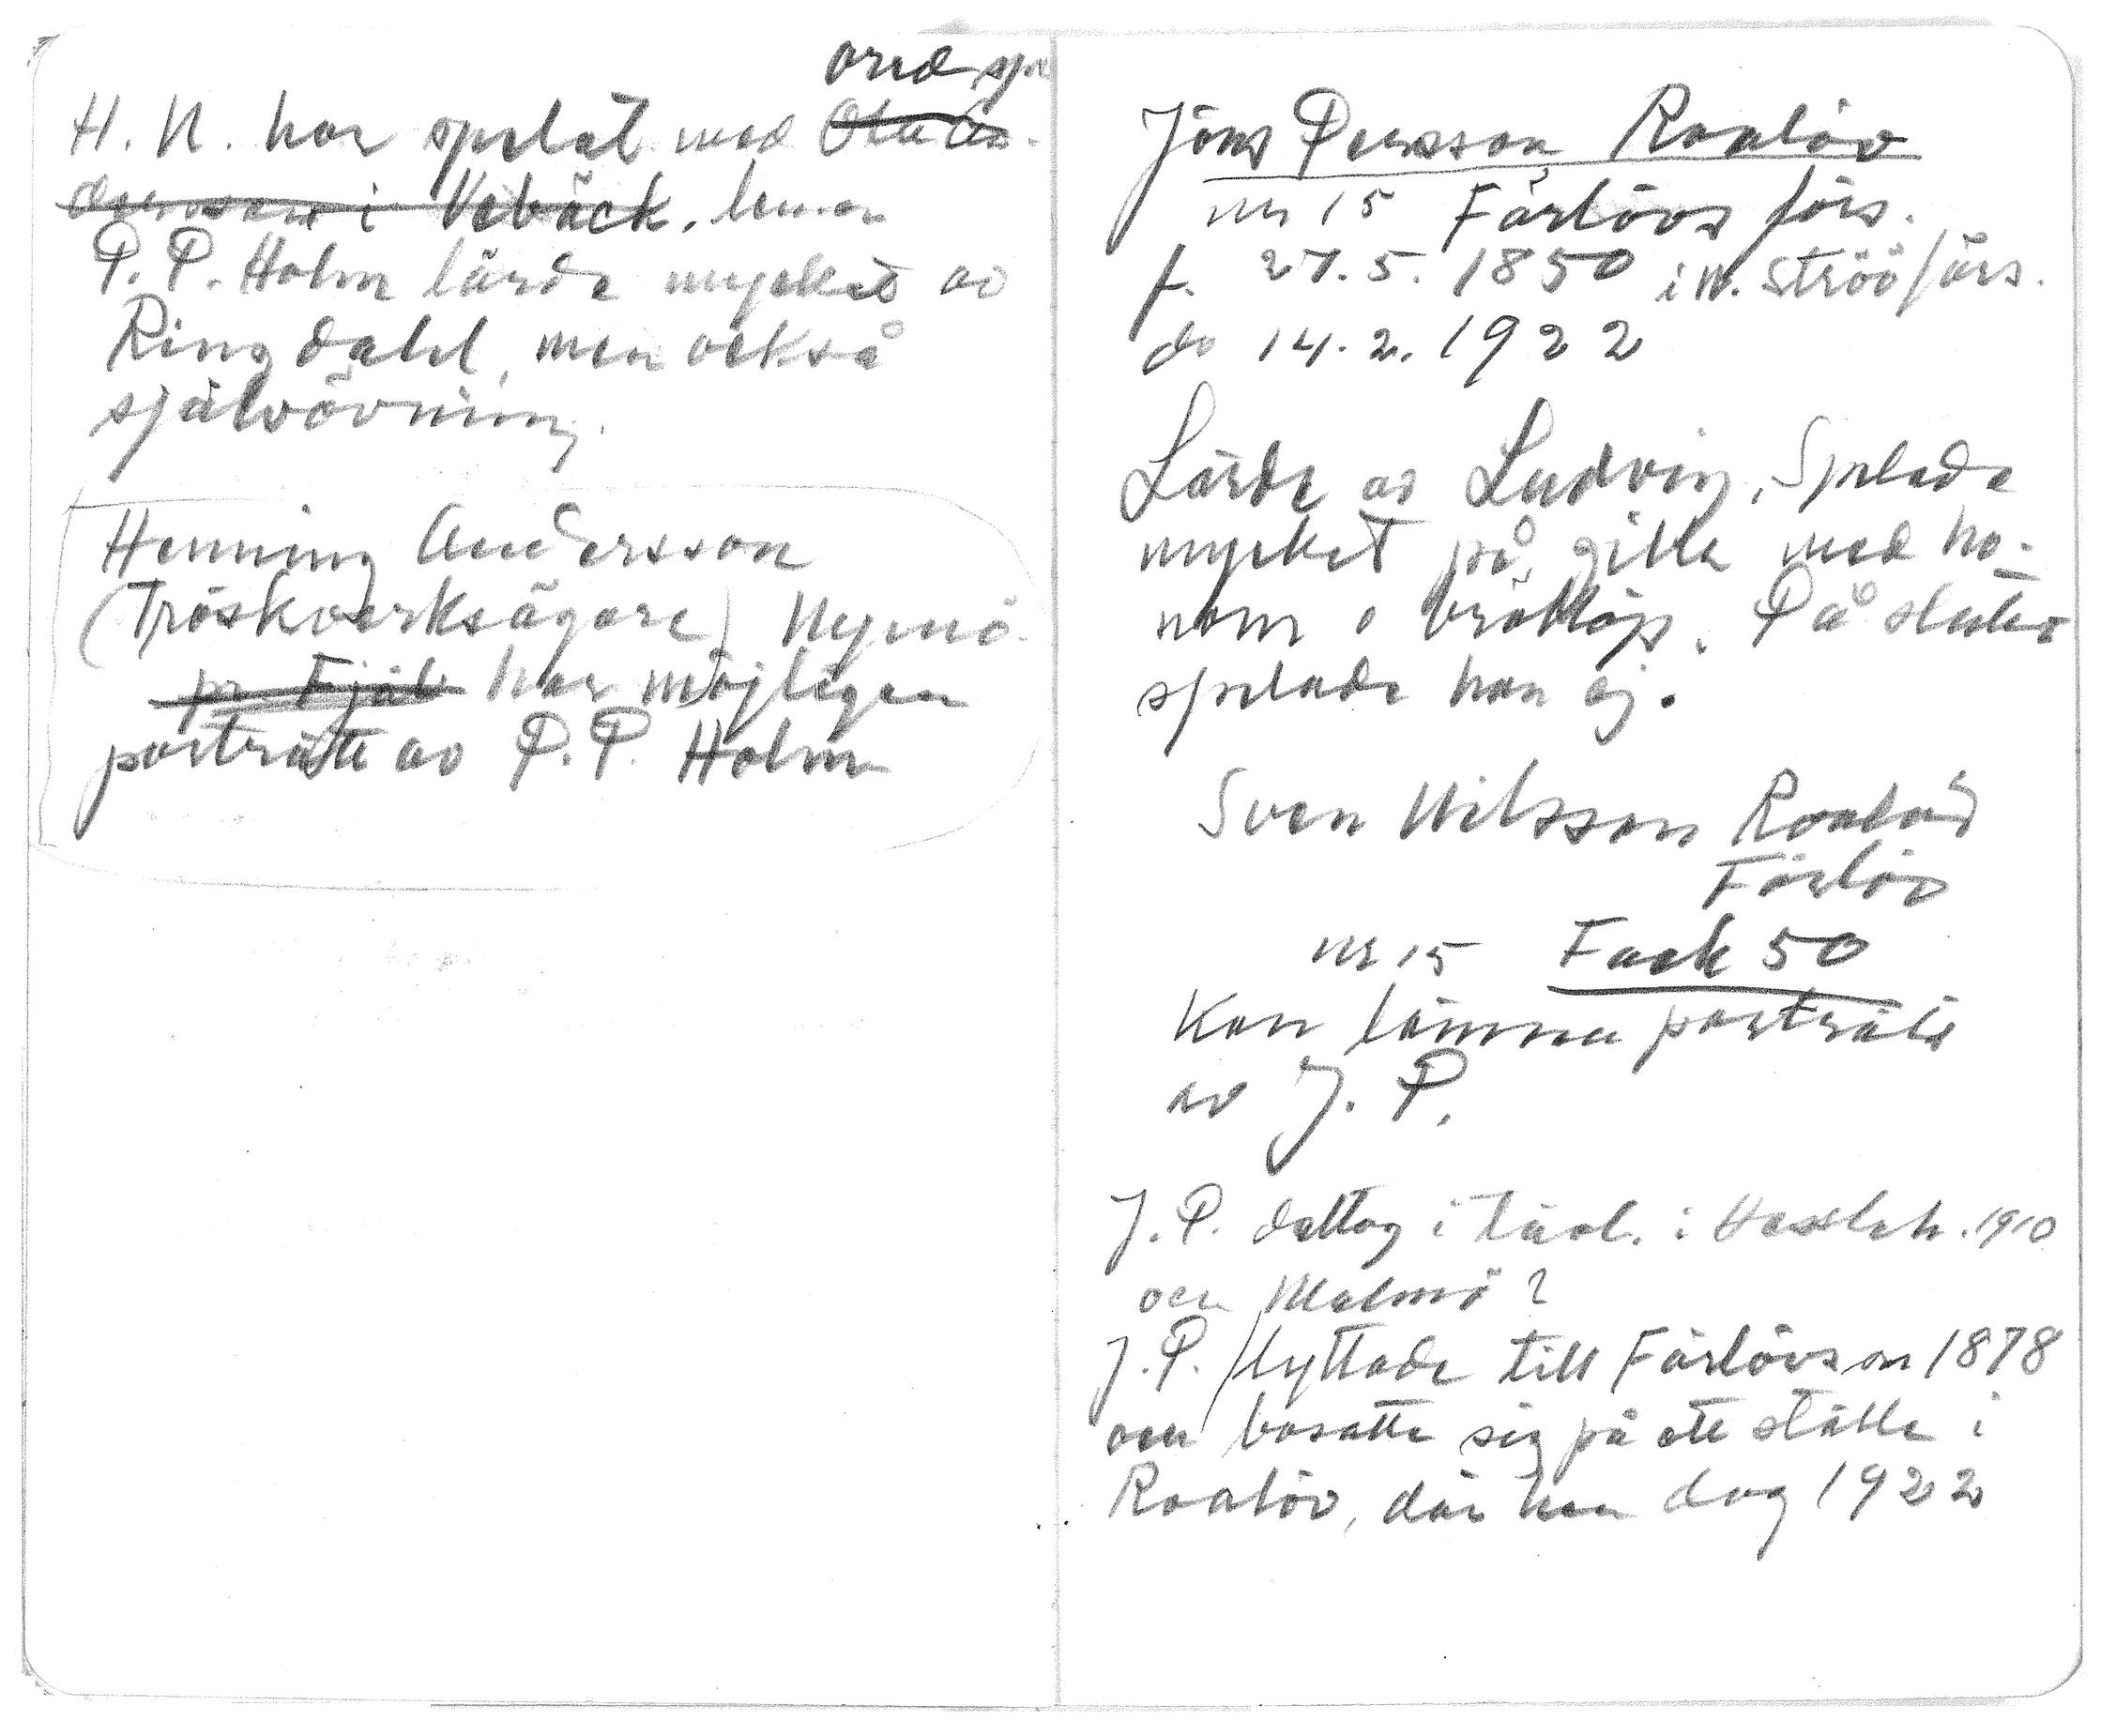 and. spe
H. N. har spelat med Olu An-
dersson i Vebäck.
P. P. Holm lärde mycket av
Ringdahl, men också
självövning.
Henning Andersson
(Tröskverksägare) Nymö
pr Fjäl har möjligen
porträtt av P. P. Holm
Jöns Persson Roalöv
nr 15 Färlövs förs.
f. 27.5. 1850 i N. Ströö förs.
dö 14.2. 1922
Lärde av Ludvig. Spelade
mycket på gille med ho-
nom o bröllop. På slutet
spelade han ej.
Sven Nilsson Roalöv
Färlöv
nr 15 Fack 50
Kan lämna porträtt
av J. P.
J. P. deltog i tävl. i Hessleh. 1910
och Malmö?
J. P. flyttade till Färlövs sn 1878
och bosatte sig på ett ställe i
Roalöv, där han dog 1922